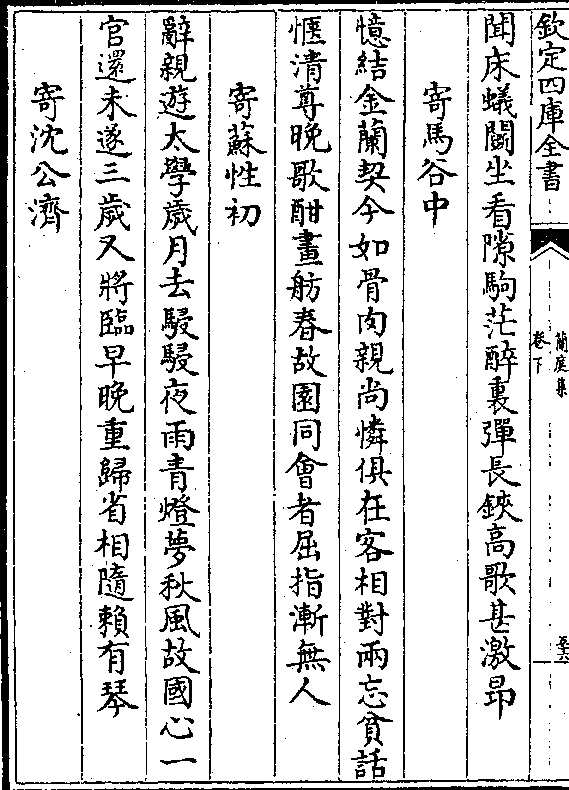 欽定四庫全書
蘭庭集
卷下
聞床蟻鬭坐看隙駒茫醉裏彈長鋏高歌甚激昂
寄馬谷中
憶結金蘭契今如骨肉親尚憐俱在客相對兩忘貧話
愜清尊晚歌酣畫舫春故園同會者屈指漸無人
寄蘇性初
辭親遊太學歲月去駸駸夜雨青燈夢秋風故國心一
官還未遂三歲又將臨早晚重歸省相隨賴有琴
寄沈公濟